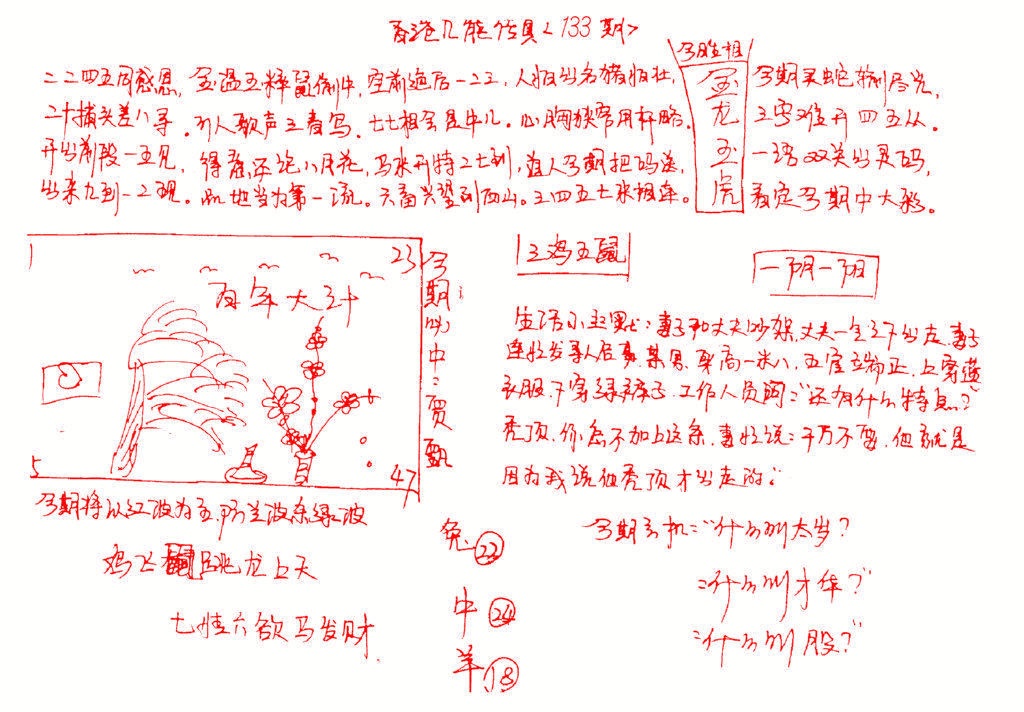 香港几熊佐具<133期>
今期生相
金龙玉虎
二二四五同感恩,金温五粹鼠偷牛,空前绝后一二三,人怕出名猪怕壮,
今期买蛇
二十捕头差八寻。引人歌声三春写。七七相会是牛儿。心胸狭常用杆略。
三零难开四五从。
开出前段一五见,得意 八月花,马来开特二七到,道人今期把码送,
一语双关出灵码,
出来九到一二现。此地当为第一流。六畜兴望到西山。三四五七来相连。
看定今期中大彩。
1
23
百年大计
5
47
今期:必中:贾甄
三鸡五鼠
一阴一阳
生活小幽默:妻子和丈夫吵架,丈夫一气之下出走,妻子
连忙发寻人启事,某男,身高一米八,五官端正,上穿蓝
衣服,下穿绿裤子,工作人员问:"还有什么特点?"
秃顶,你怎不加上这条,妻忙说:千万不要,他就是
因为我说他秃顶才出走的:"
今期将以红波为主,防兰波杀绿波
鸡飞鼠跳龙上天
七情六欲马发财
兔22
中24
羊18
今期玄机:"什么叫太岁?
:什么叫才华?"
:什么叫股?"